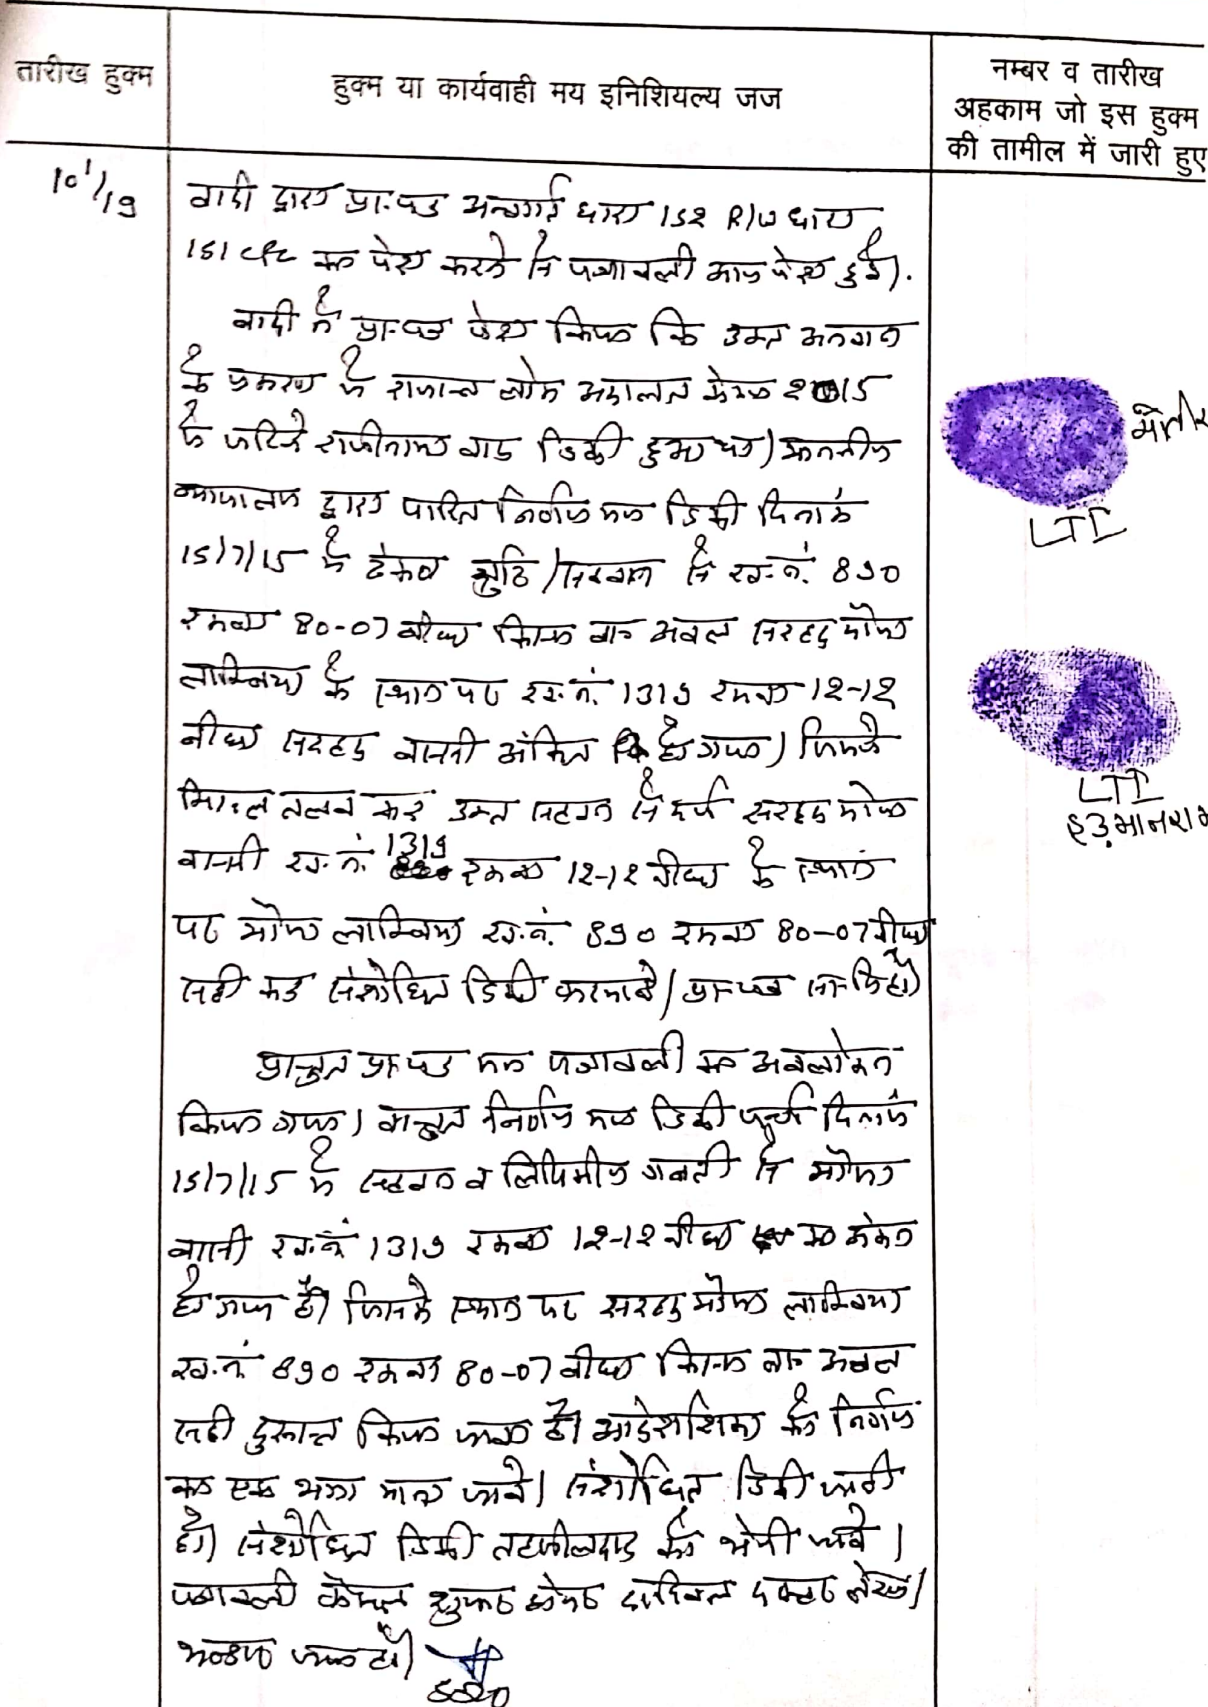 तारीख हुक्म
हुक्म या कार्यवाही मय इनिशियल्य जज
नम्बर व तारीख
अहकाम जो इस हुक्म
की तामील में जारी हुए
10/1/19
वादी द्वारा प्रा.पत्र अन्तर्गत धारा 152 R/W धारा
151 CPC का पेश करने से पत्रावली आज पेश हुई।
वादी ने प्रा-पत्र पेश किया कि उक्त
के प्रकरण में राजस्व लोक अदालत केम्प 2015
में जरिये राजीनामा वाद डिक्री हुआ था। माननीय
न्यायालय द्वारा पारित निर्णय मय डिक्री दिनांक
15/7/15 में टंकण त्रुटि / से ख.नं. 890
रकबा 80-07 बीघा किस्म बा. अवल सरहद मौजा
लाम्बिया के स्थान पर ख.नं. 1319 रकबा 12-12
बीघा सरहद अंकित हो गया। जिसके
मिसल तलब कर उक्त सहवन से दर्ज सरहद मौजा
ख.नं. 1319 रकबा 12-12 बीघा के स्थान
पर मौजा लाम्बिया ख.नं. 890 रकबा 80-07 बीघा
सही कर संशोधित डिक्री फरमावे। प्रा-पत्र
प्रस्तुत प्रा-पत्र मय पत्रावली का अवलोकन
किया गया। निर्णय मय डिक्री पर्चा दिनांक
15/7/15 में सहवन व लिपिकीय गलती से मौजा
ख.नं. 1319 रकबा 12-12 बीघा का अंकन
हो गया है। जिसके स्थान पर सरहद मौजा लाम्बिया
ख.नं. 890 रकबा 80-07 बीघा किस्म बा. अवल
सही दुरुस्त किया जाता है। आदेशिका को निर्णय
का एक भाग माना जावे। संशोधित डिक्री जारी
हो। संशोधित डिक्री तहसीलदार को भेजी जावे।
पत्रावली फैसल शुमार होकर दाखिल दफ्तर
LTI
LTI
हड़मानराम